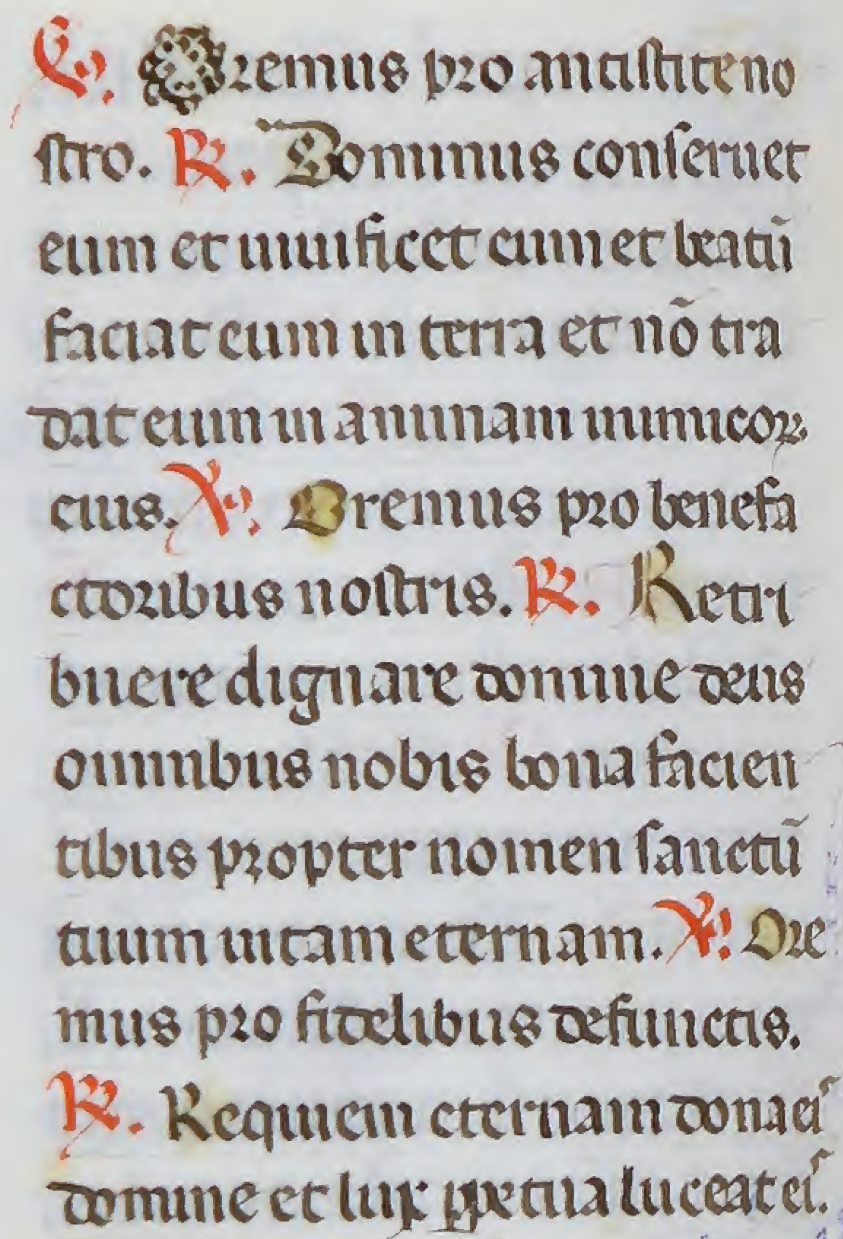 ℣. Oremus pro antistite no
stro. ℟. Dominus conseruet
eum et uiuificet eum et beatū
faciat eum in terra et nō tra
dat eum in animam inimicoꝝ
eius. ℣. Oremus pro benefa
ctoribus nostris. ℟. Retri
buere dignare domine deus
omnibus nobis bona facien
tibus propter nomen sanctū
tuum uitam eternam. ℣. Ore
mus pro fidelibus defunctis.
℟. Requiem eternam dona eis
domine et lux ꝑpetua luceat eis.